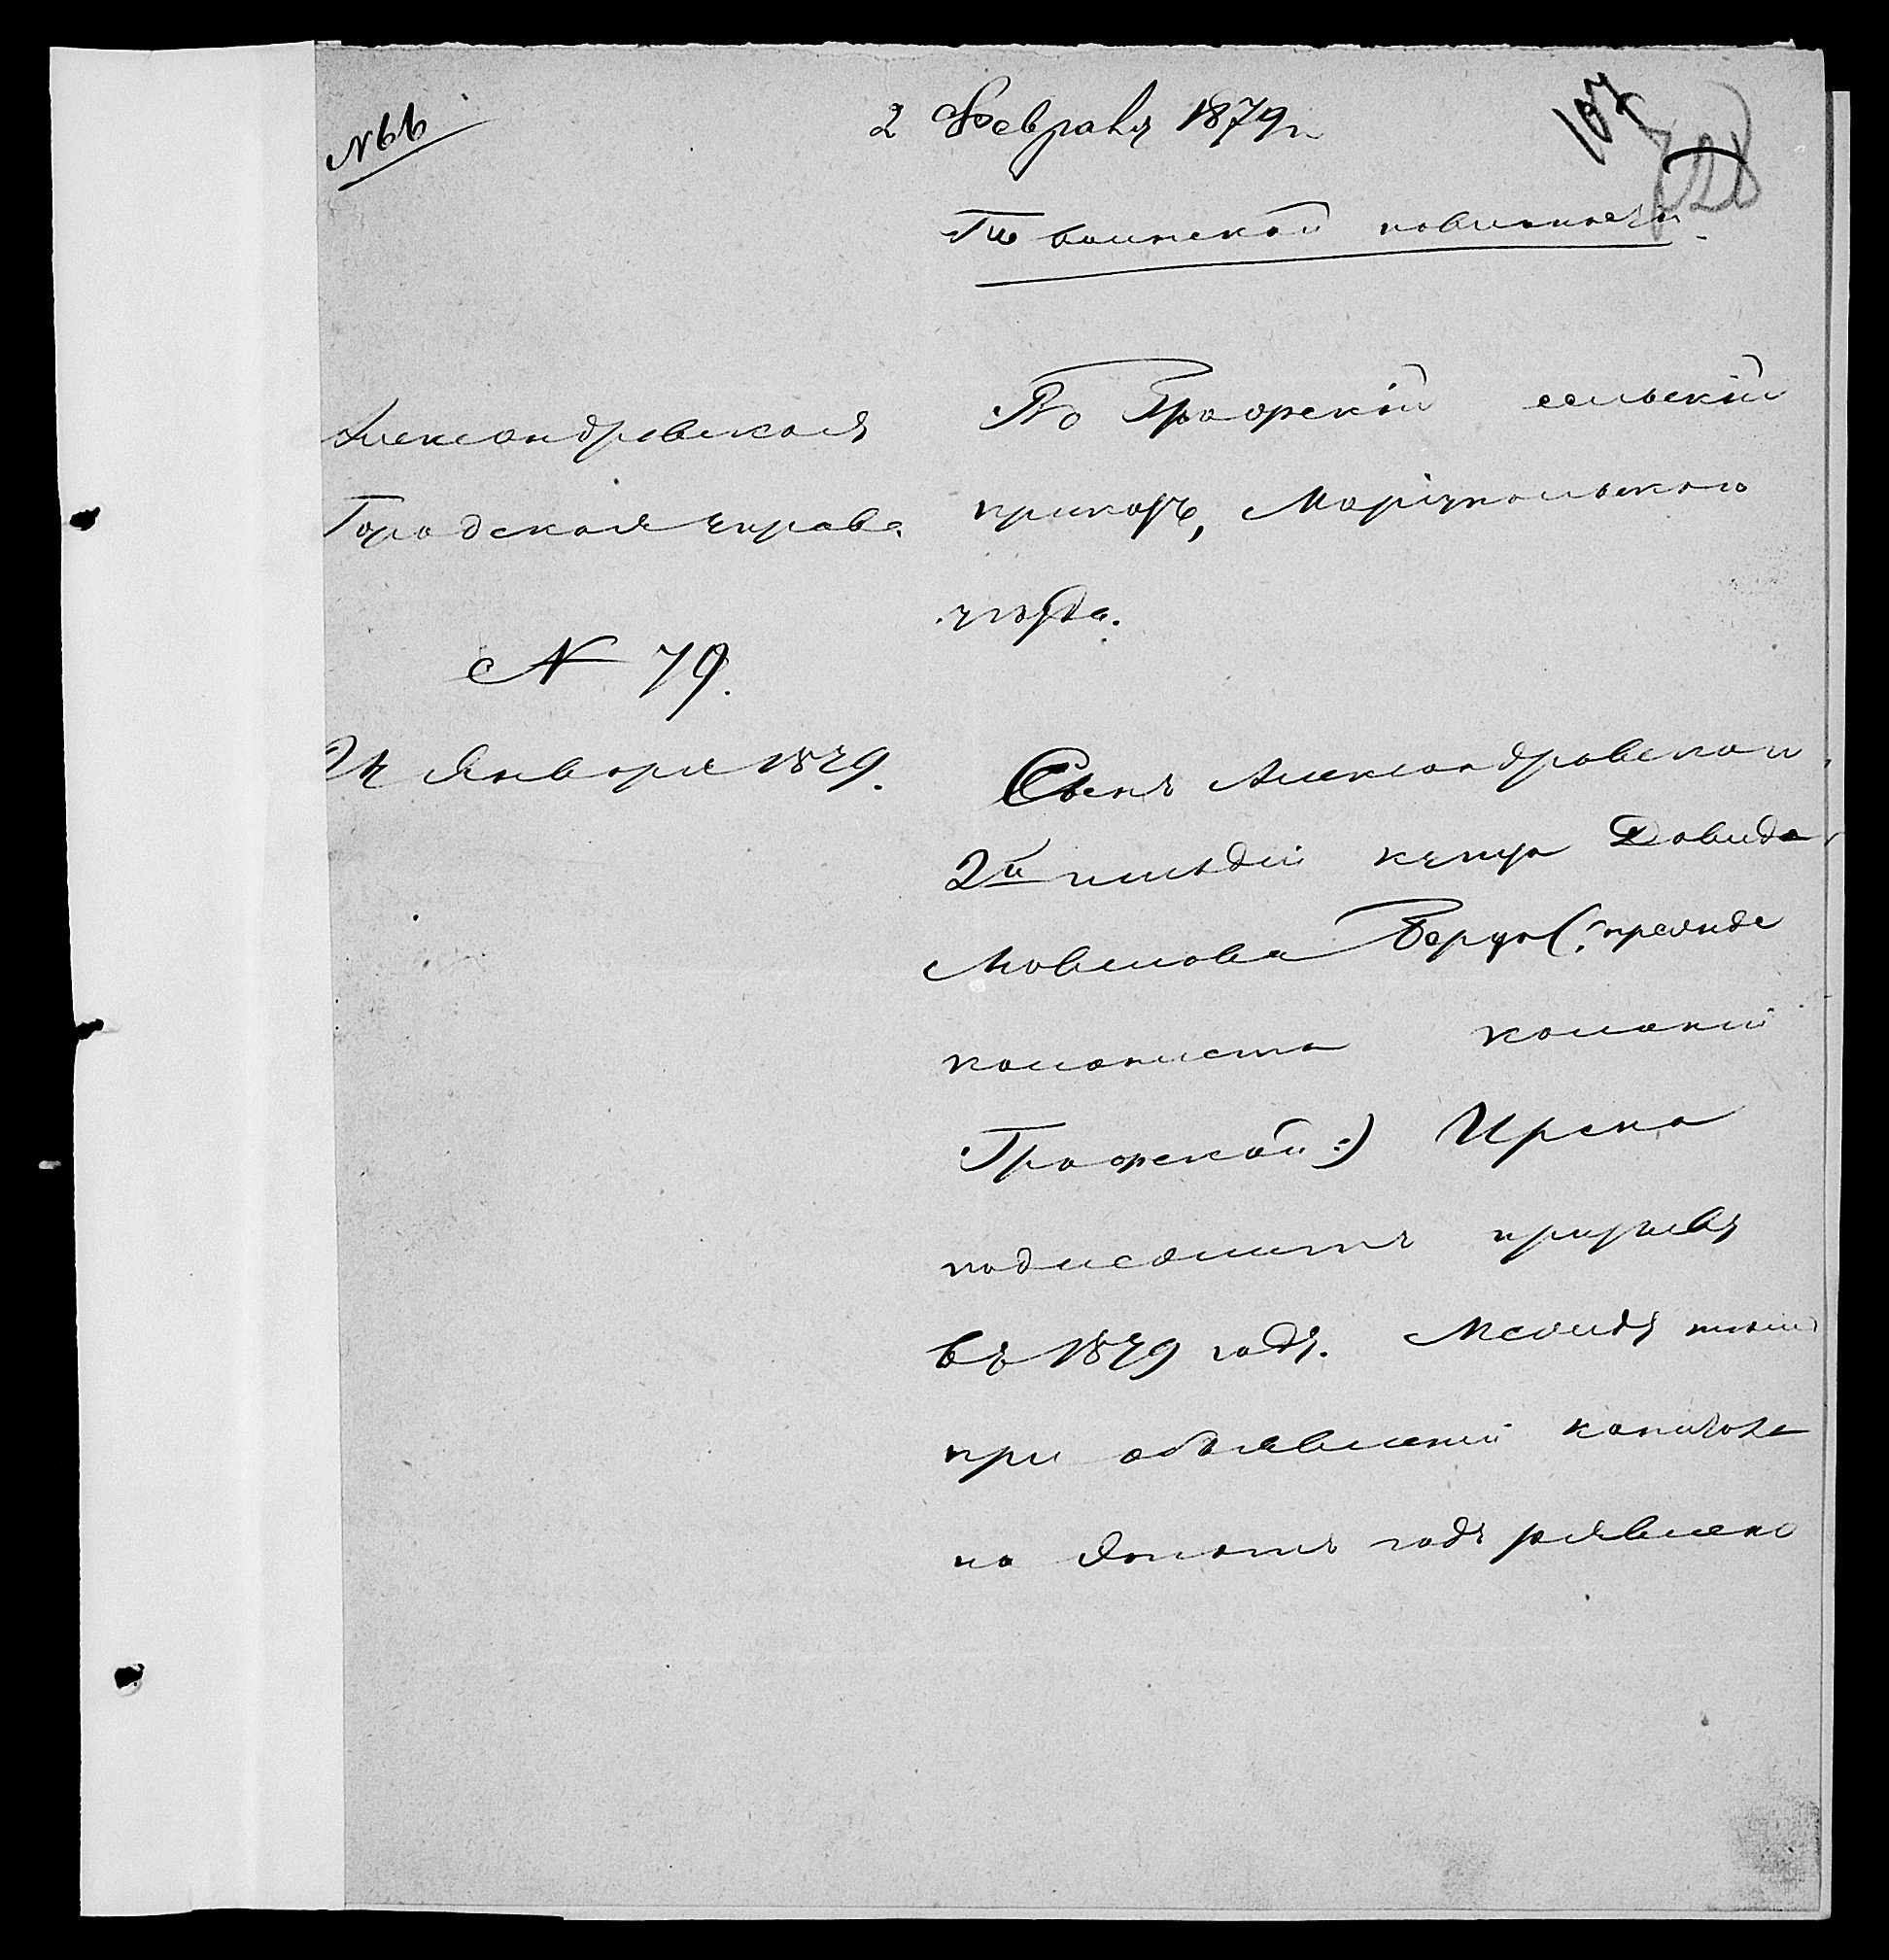 №66
2 Февраля 1879 г.
107
728
По воинской повинности.
Александровская
Городская управа
№ 79.
24 Января 1879.
Въ Графскій сельскій
приказъ, Маріупольскаго
уѣзда.
Сынъ Александровскаго
2й гильдіи купца Давида
Мовшова (: прежде
колониста колоніи
Графской :)
подлежитъ призыву
въ 1879 году. Между тѣмъ
при объявленіи капитала
на этотъ годъ заявлено